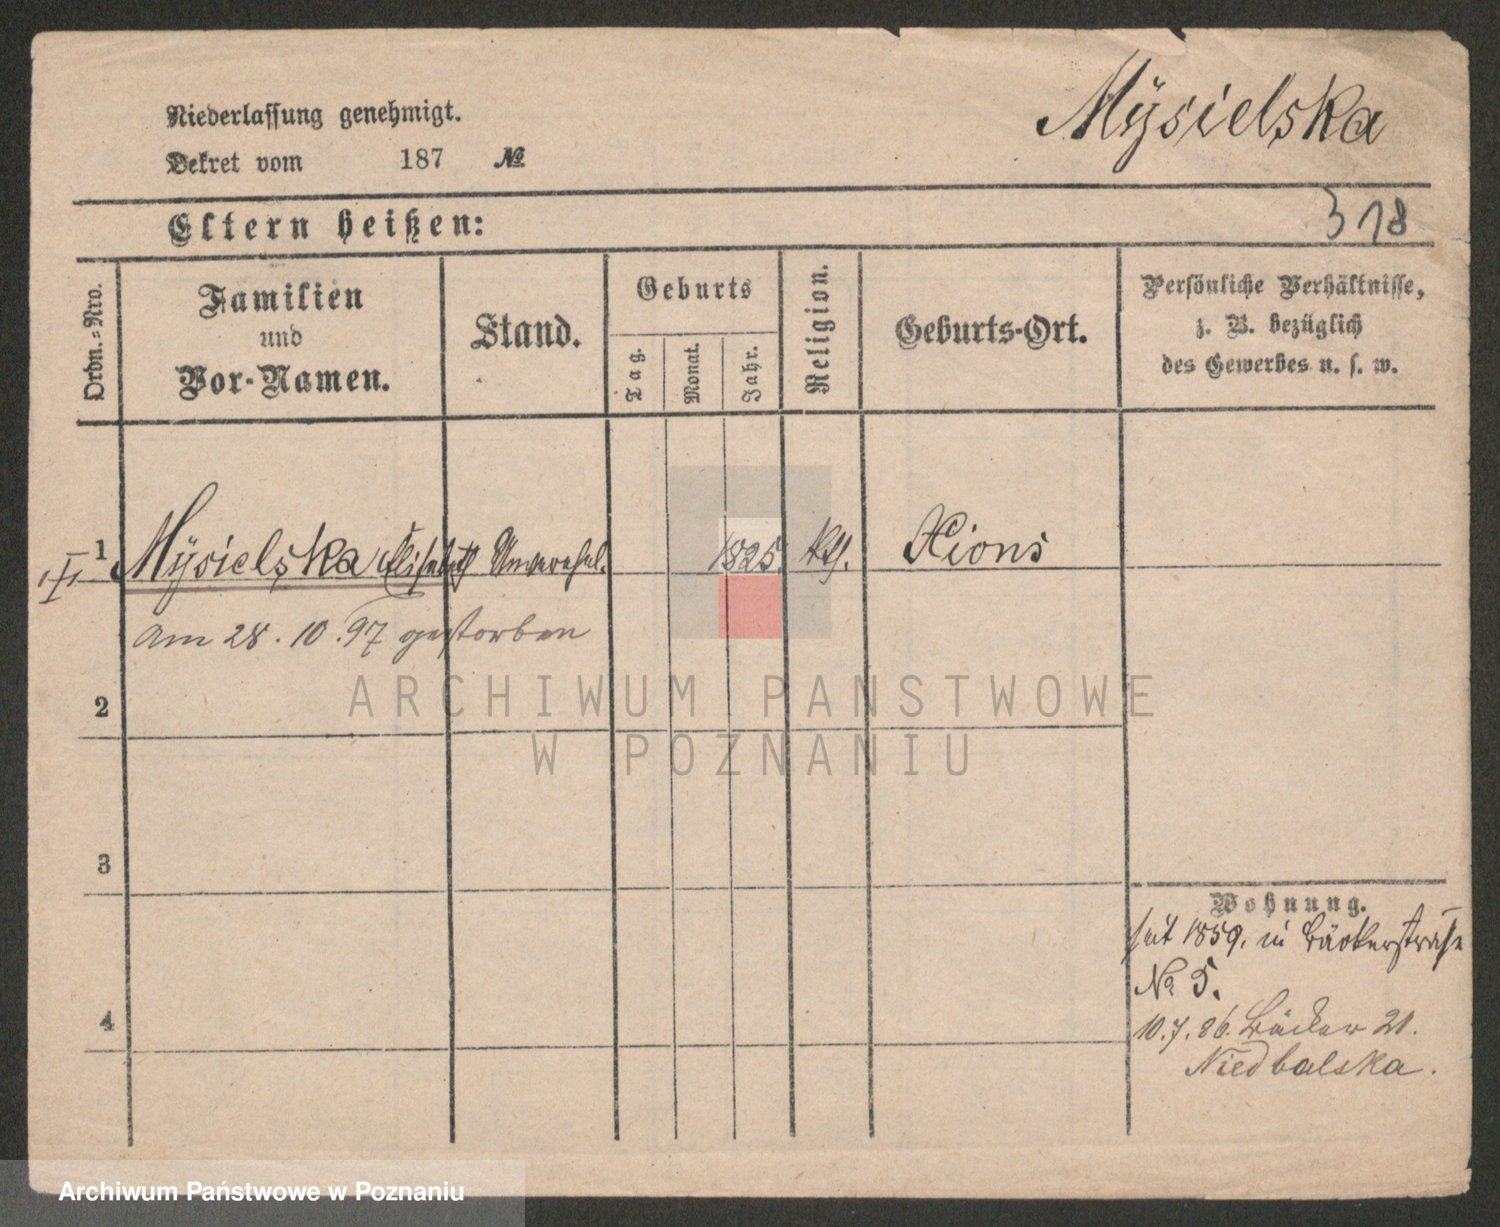 Mÿsielska
Niederlassung genehmigt.
Dekret vom 187 №
318
Eltern heißen:
Ordn.=Nro.
Familien
und
Vor-Namen.
Stand.
Geburts
Tag.
Monat.
Jahr.
Religion.
Geburts-Ort.
Persönliche Verhältnisse,
z. B. bezüglich
des Gewerbes u. s. w.
1 Mÿsielska Elisabeth Unverehel. 1825. kth. Xions
am 28. 10. 97 gestorben
2
3
4
Wohnung.
seit 1859. in Bäckerstraße
No 5.
10.7.86. Bäcker 21.
Niedbalska.
ARCHIWUM PAŃSTWOWE
W POZNANIU
Archiwum Państwowe w Poznaniu